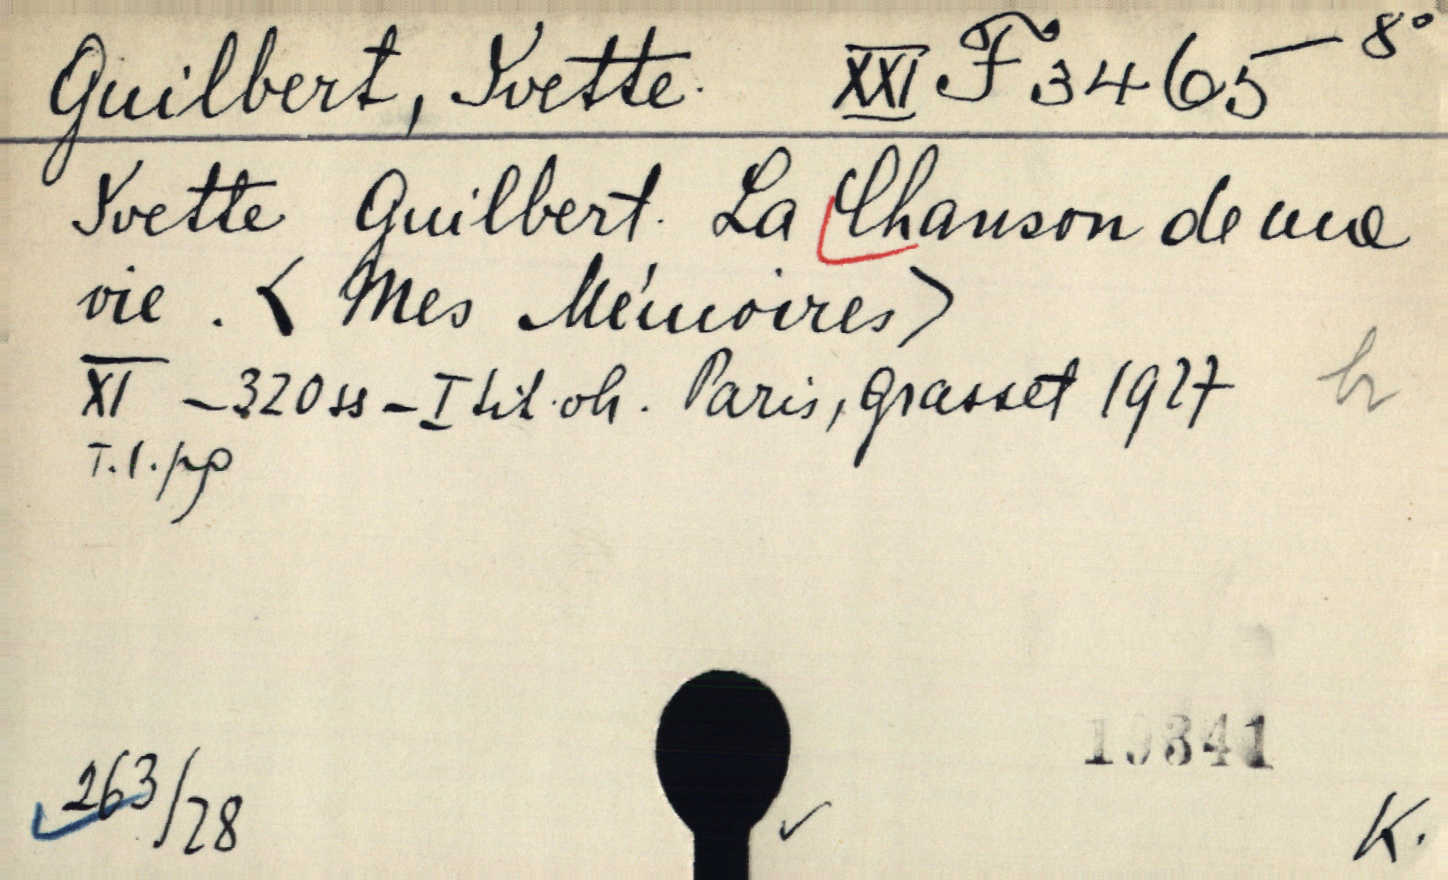 Guilbert, Yvette. XXI F 3465 8°
Yvette Guilbert. La Chanson de ma
vie. < Mes Mémoires >
XI - 320 ss - I tit. oh. Paris, Grasset 1927 br
T.l.pp
19841
263/28
K.